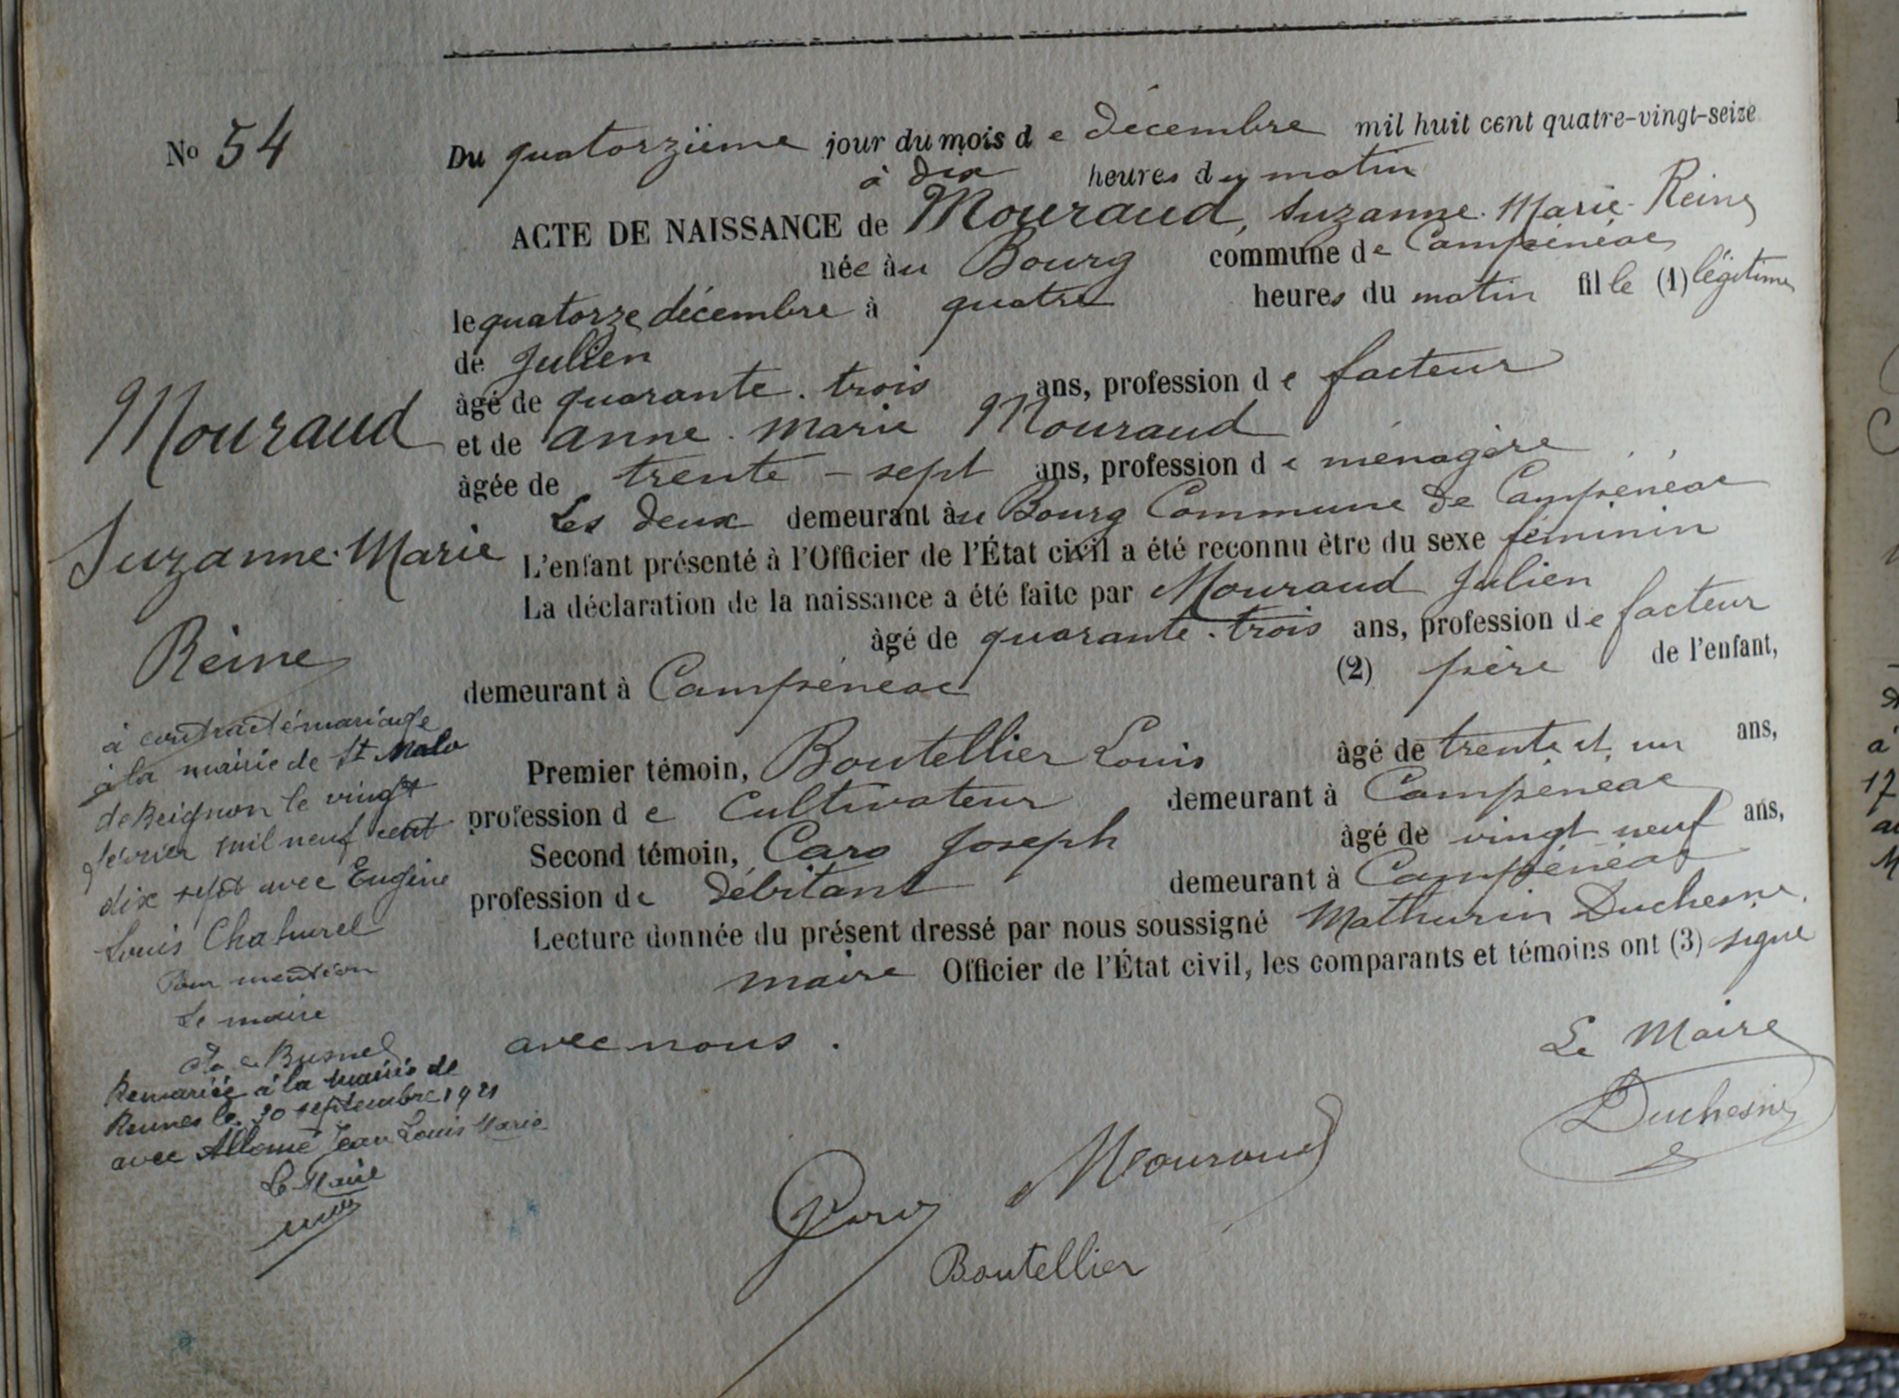 No 54
Du quatorzième jour du mois de décembre mil huit cent quatre-vingt-seize
à dix heures du matin
ACTE DE NAISSANCE de Mouraud, Suzanne. Marie. Reine
née àu Bourg commune de Campénéac
le quatorze décembre à quatre heures du matin fille (1) légitime
de Julien
àgé de quarante. trois ans, profession de facteur
et de anne. marie Mouraud
àgée de trente - sept ans, profession de ménagère
Les deux demeurant àu Bourg Commune de Campénéac
L'enfant présenté à l'Officier de l'État civil a été reconnu être du sexe féminin
La déclaration de la naissance a été faite par Mouraud Julien
àgé de quarante. trois ans, profession de facteur
demeurant à Campénéac (2) père de l'enfant,
Premier témoin, Boutellier Louis àgé de trente et un ans,
profession de Cultivateur demeurant à Campénéac
Second témoin, Caro Joseph àgé de vingt neuf ans,
profession de débitant demeurant à Campénéac
Lecture donnée du présent dressé par nous soussigné Mathurin Duchesne,
maire Officier de l'État civil, les comparants et témoins ont (3) signé
avec nous.
Le Maire
Duchesne
Mouraud
Boutellier
Mouraud
Suzanne. Marie
Reine
à contracté mariage
à la mairie de St Malo
de Beignon le vingt
février mil neuf cent
dix sept avec Eugène
Louis
Pour mention
Le maire
Busnel
Remariée à la mairie de
Rennes le 30 septembre 1921
avec Jean Louis Marie
Le Maire